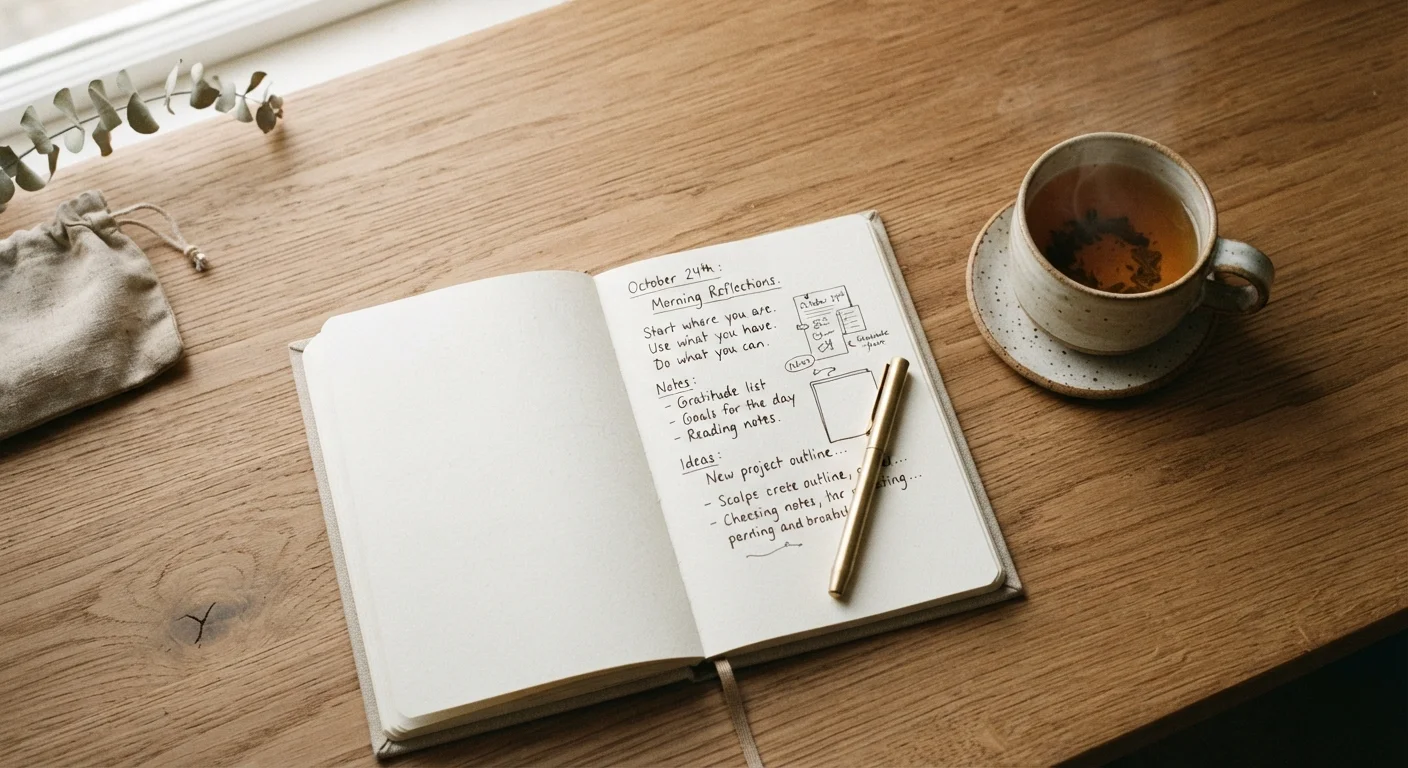 October 24th:
Morning Reflections.
Start where you are.
Use what you have.
Do what you can.
Notes:
- Gratitude list
- Goals for the day
- Reading notes.
Ideas:
New project outline...
- Scalps crete outline,
- Checsing notes,
perding and